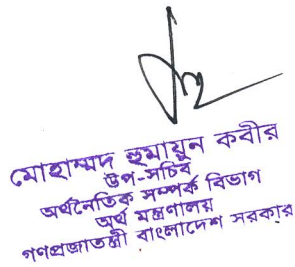 মোহাম্মদ হুমায়ুন কবীর
উপ-সচিব
অর্থনৈতিক সম্পর্ক বিভাগ
অর্থ মন্ত্রণালয়
গণপ্রজাতন্ত্রী বাংলাদেশ সরকার